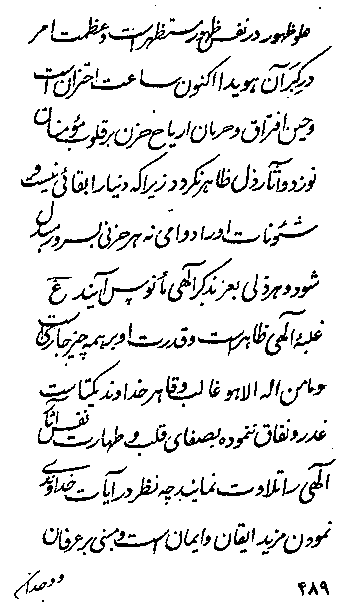 علو ظهور در نفس ظهور مستظهر است و عظمت امر
در کبر آن هویدا اکنون ساعت احتزان است
و حین افتراق و حرمان اریاح حزن بر قلوب مؤمنان
نوزد و آثار ذل ظاهر نگردد زیرا که دنیا را بقائی نیست و
شئونات او را دوامی نه هر حزنی بسرور مبدل
شود و هر ذلی بعز بذکر الهی مأنوس آیند ع
غلبهٔ الهی ظاهر است و قدرت او بر همه چیز جاری است
و ما من اله الا هو غالب و قاهر خداوند یکتاست
غدر و نفاق ننموده بصفای قلب و طهارت نفس آیات
الهی را تلاوت نمایند چه نظر در آیات خداوندی
نمودن مزید ایقان و ایمان است و مبنی بر عرفان
و وجدان
۴۸۹